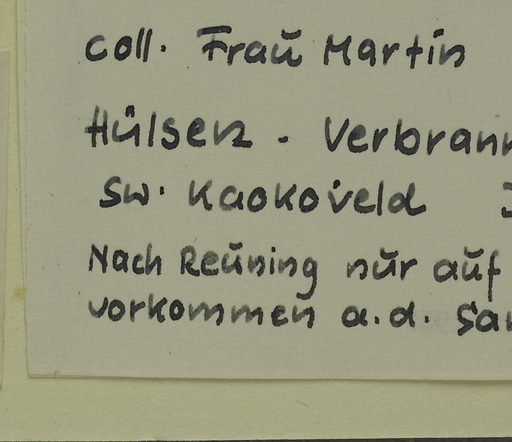 coll. Frau Martin
Hülsen - Verbrann
SW. Kaokoveld
Nach Reuning nur auf
vorkommen a.d. Sa